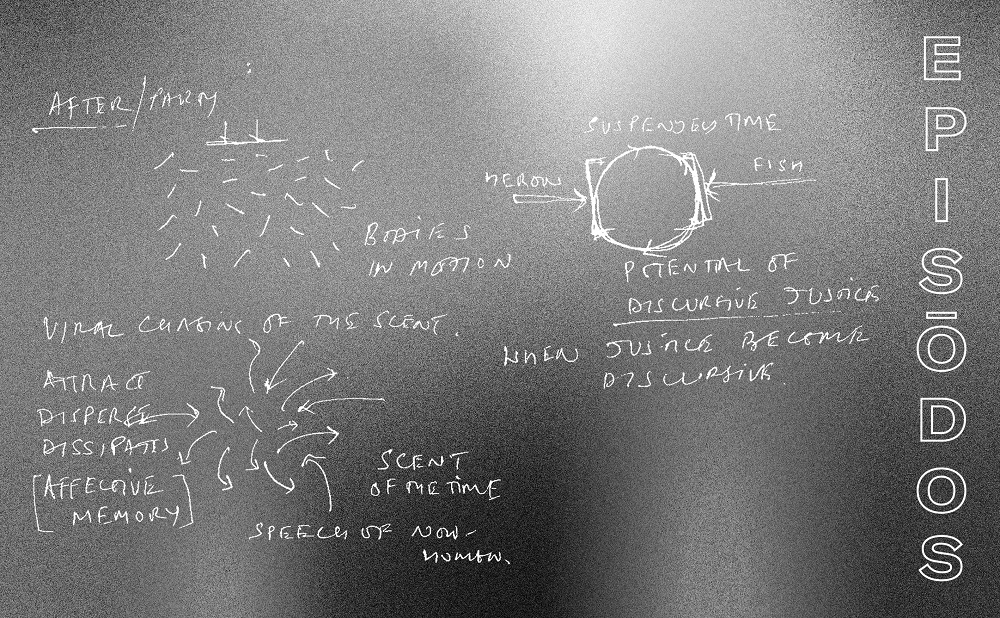 AFTER/PARTY
BODIES
IN MOTION
VIRAL CHASING OF THE SCENT.
ATTRACT
DISPERSE
DISSIPATES
[AFFECTIVE
MEMORY]
SCENT
OF THE TIME
SPEECH OF NON-
HUMAN.
SUSPENDED TIME
HERON
FISH
POTENTIAL OF
DISCURSIVE JUSTICE
WHEN JUSTICE BECOME
DISCURSIVE.
EPISODOS